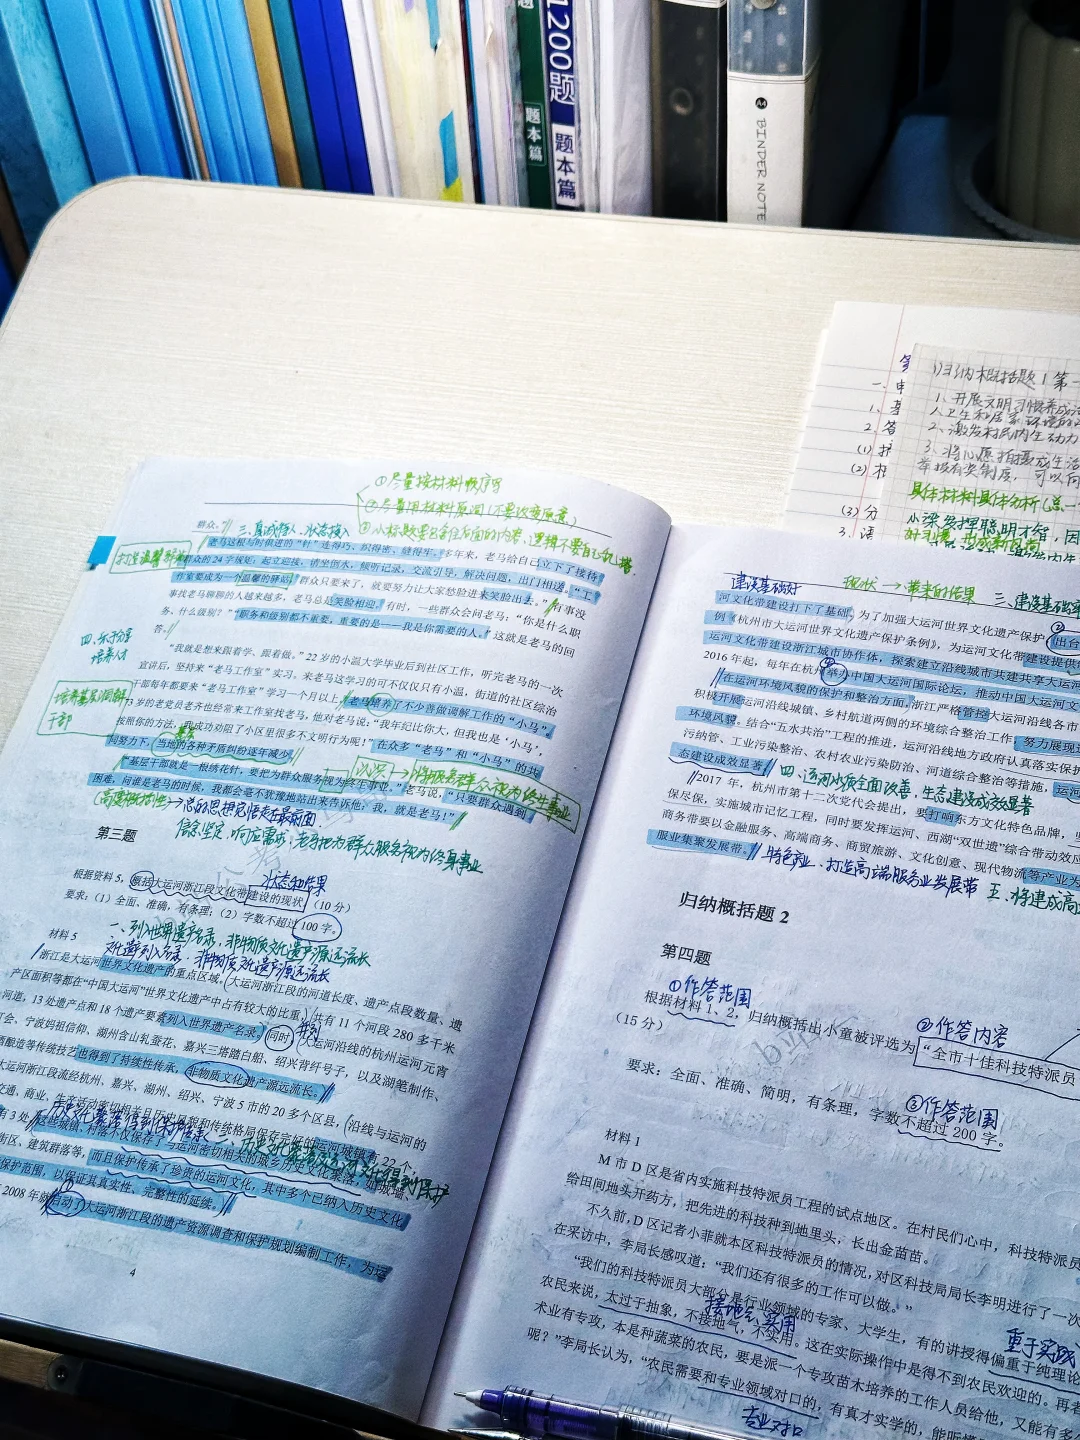 1200题
题本篇
题本篇
A4 BINDER NOTE
归纳概括题1 第一
1、开展文明习惯养成
2、激发村民内生动力
具体材料具体分析
①尽量按材料顺序写
②尽量用材料原词(不要改变原意)
③小标题要包含住后面的内容，逻辑不要自己乱搭
群众。”
三、真诚待人、
老马这根与时俱进的“针”连得巧、织得密、缝得牢。多年来，老马给自己立下了接待
群众的24字规矩：起立迎接，请坐倒水，倾听记录，交流引导，解决问题，出门相送。“工
作室要成为一个温馨的驿站，群众只要来了，就要努力让大家愁脸进来笑脸出去。”有事没
事找老马聊聊的人越来越多，老马总是笑脸相迎。有时，一些群众会问老马：“你是什么职
务、什么级别？”“职务和级别都不重要，重要的是——我是你需要的人。”这就是老马的回
答。
四、乐于分享
培养人才
“我就是想来跟着学、跟着做。”22岁的小温大学毕业后到社区工作，听完老马的一次
宣讲后，坚持来“老马工作室”实习。来老马这学习的可不仅仅只有小温，街道的社区综治
干部每年都要来“老马工作室”学习一个月以上，老马培养了不少善做调解工作的“小马”。
73岁的老党员老齐也经常来工作室找老马，他对老马说：“我年纪比你大，但我也是‘小马’，
按照你的方法，我成功劝阻了小区里很多不文明行为呢！”在众多“老马”和“小马”的共
同努力下，当地的各种矛盾纠纷逐年减少。
培养基层调解
干部
“基层干部就是一根绣花针，要把为群众服务视为终生事业。”老马说，“只要群众遇到
困难，问谁是老马的时候，我都会毫不犹豫地站出来告诉他：我，就是老马！”
(高度概括性)→总的思想觉悟走在最前面
信念坚定，响应需求，老马把为群众服务视为终身事业
第三题
状态和结果
根据资料5，概括大运河浙江段文化带建设的现状。（10分）
要求：（1）全面、准确，有条理；（2）字数不超过100字。
一、列入世界遗产名录，非物质文化遗产源远流长
材料5
文化遗产列入名录，非物质文化遗产源远流长
浙江是大运河世界文化遗产的重点区域。大运河浙江段的河道长度、遗产点段数量、遗
产区面积等都在“中国大运河”世界文化遗产中占有较大的比重，共有11个河段280多千米
河道，13处遗产点和18个遗产要素列入世界遗产名录。同时，大运河沿线的杭州运河元宵
灯会、宁波妈祖信仰、湖州含山轧蚕花、嘉兴三塔踏白船、绍兴背纤号子，以及湖笔制作、
酒酿造等传统技艺也得到了持续性传承，非物质文化遗产源远流长。
大运河浙江段流经杭州、嘉兴、湖州、绍兴、宁波5市的20多个区县，沿线与运河的
交通、商业、生活活动密切相关且历史风貌和传统格局保存完好的运河城镇有22个，
有3处。这些城镇、村落不仅保存了与运河密切相关的城乡历史文化聚落，如城墙、
街区、建筑群落等，而且保护传承了珍贵的运河文化，其中多个已纳入历史文化
保护范围，以保证其真实性、完整性的延续。
2008年启动了大运河浙江段的遗产资源调查和保护规划编制工作，为运
4
建设基础好
现状→带来的结果
三、建设基础
河文化带建设打下了基础。为了加强大运河世界文化遗产保护，出台
例《杭州市大运河世界文化遗产保护条例》，为运河文化带建设提供
运河文化带建设浙江城市协作体，探索建立沿线城市共建共享大运河
2016年起，每年在杭州举办中国大运河国际论坛，推动中国大运河文
在运河环境风貌的保护和整治方面，浙江严格管控大运河沿线各市
积极开展运河沿线城镇、乡村航道两侧的环境综合整治工作，努力展现
环境风貌。结合“五水共治”工程的推进，运河沿线地方政府认真落实保护
污纳管、工业污染整治、农村农业污染防治、河道综合整治等措施，运河
态建设成效显著。
四、运河水质全面改善，生态建设成效显著
2017年，杭州市第十二次党代会提出，要打响东方文化特色品牌，
保尽保，实施城市记忆工程，同时要发挥运河、西湖“双世遗”综合带动效应
商务带要以金融服务、高端商务、商贸旅游、文化创意、现代物流等产业为
服业集聚发展带。
特色产业、打造高端服务业发展带
五、将建成高
归纳概括题2
第四题
①作答范围
②作答内容
根据材料1、2，归纳概括出小童被评选为“全市十佳科技特派员
（15分）
③作答范围
要求：全面、准确、简明，有条理，字数不超过200字。
材料1
M市D区是省内实施科技特派员工程的试点地区。在村民们心中，科技特派员
给田间地头开药方，把先进的科技种到地里头，长出金苗苗。
不久前，D区记者小菲就本区科技特派员的情况，对区科技局局长李明进行了一次
在采访中，李局长感叹道：“我们还有很多的工作可以做。”
“我们的科技特派员大部分是行业领域的专家、大学生，有的讲授得偏重于纯理论
接地气、实用
重于实践
农民来说，太过于抽象，不接地气，不实用。这在实际操作中是得不到农民欢迎的。再者
术业有专攻，本是种蔬菜的农民，要是派一个专攻苗木培养的工作人员给他，又能有多
呢？”李局长认为，“农民需要和专业领域对口的，有真才实学的，能听懂
专业对口